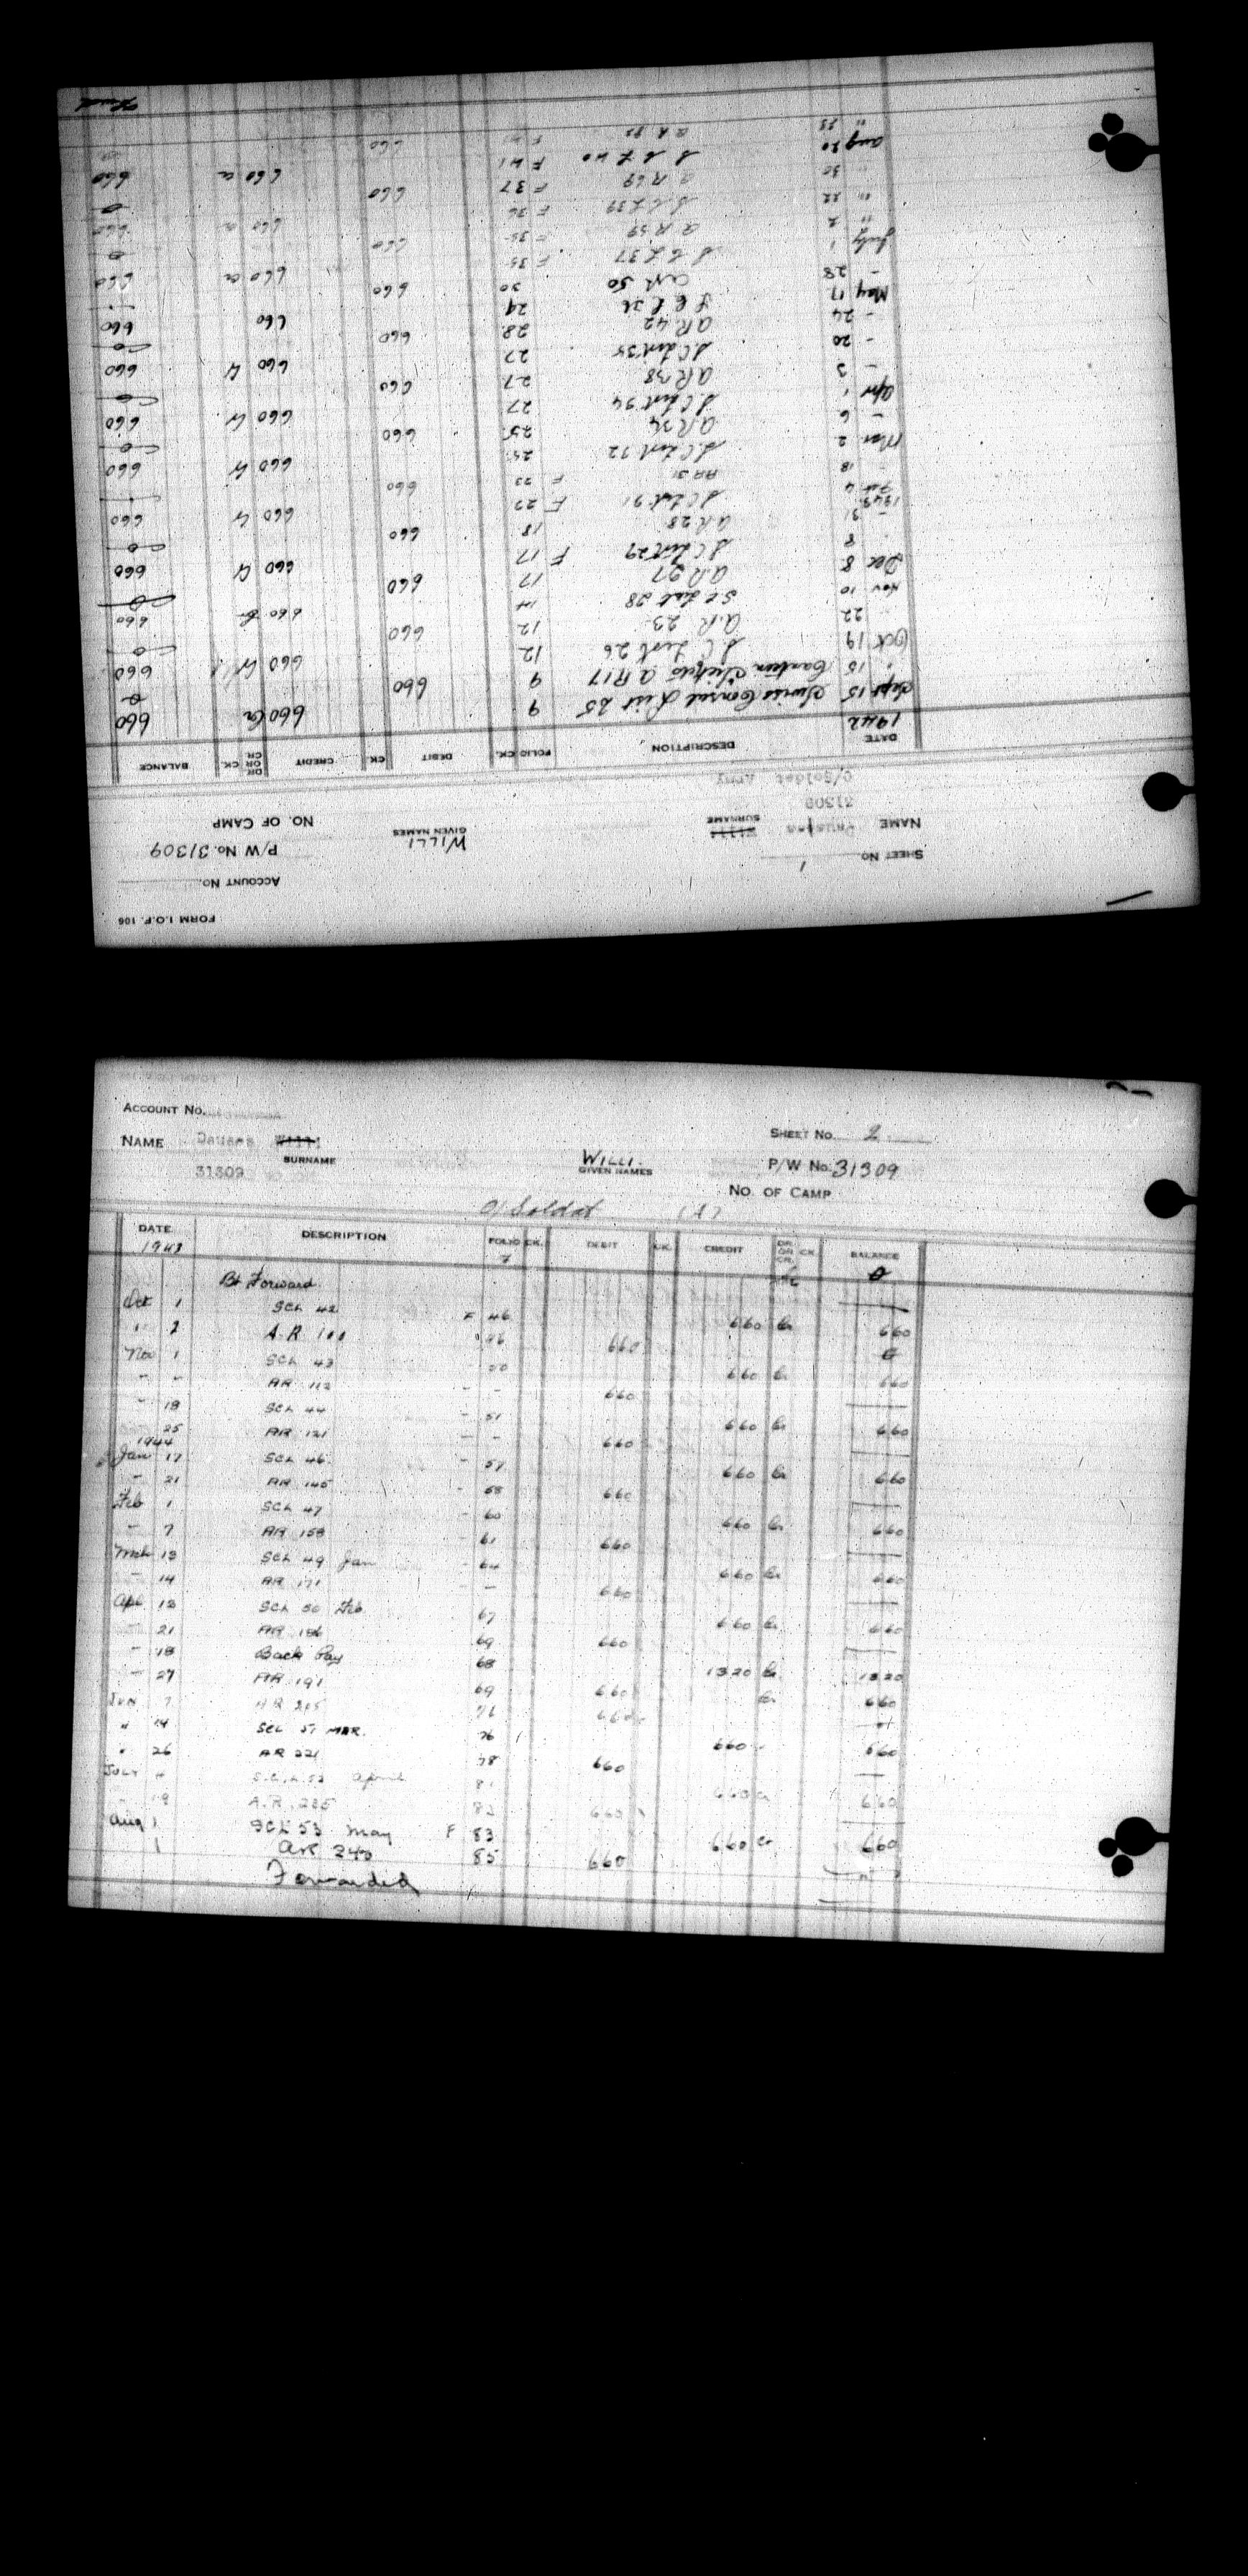 FORM I.O.F. 106
ACCOUNT No.
SHEET No. 1
P/W No. 31309
NAME WILLI
SURNAME GIVEN NAMES
NO. OF CAMP
31309
O/Soldat Army
DATE DESCRIPTION FOLIO CK. DEBIT CK. CREDIT DR. OR CR. CK. BALANCE
1942
Sept 15 Swiss Consul List 25 9 660 Cr 660
" 15 Canteen Tickets A R 17 9 660 0
Oct 19 S.C. List 26 12 660 Cr 660
22 A.R. 23 12 660 0
Nov 10 S C List 28 14 660 Cr 660
Dec 8 A.R 27 17 660 0
8 S C List 29 F 17 660 Cr 660
A.R 28 18 660 0
1943
Feb 4 S C List 31 F 22 660 Cr 660
18 AR 31 F 23 660
Mar 2 S.C List 32 25 660 Cr 660
- 6 A.R 34 25 660 0
Apr 1 S C List 34 27 660 Cr 660
- 3 A R 38 27 660 0
- 20 S.C List 35 27 660 Cr 660
- 24 A R 42 28 660 0
May 17 S C L 36 29 660 660
- 28 A.R. 50 30 660
July 1 S C L 37 F 35 660 Cr 660
" 2 A R 59 F 35 660 0
" 22 S.C L 39 F 36 660 Cr 660
" 30 A R 69 F 37 660 0
Aug 20 S C L 40 F 41 660 Cr 660
" 23 A R 82 F 660
Fwd
ACCOUNT No.
NAME SHEET No. 2
SURNAME WILLI. GIVEN NAMES P/W No. 31309
31309 NO. OF CAMP
O/Soldat
DATE DESCRIPTION FOLIO CK. DEBIT CK. CREDIT DR. OR CR. CK. BALANCE
1943
Bt Forward 0
Oct 1 SCL 42 F 46 660 Cr 660
" 2 A.R 100 " 46 660 0
Nov 1 SCL 43 - 50 660 Cr 660
- - AR 112 - - 660
- 18 SCL 44 - 51 660 Cr 660
25 AR 121 - - 660
1944
Jan 17 SCL 46 - 57 660 Cr 660
- 21 AR 145 - 58 660
Feb 1 SCL 47 - 60 660 Cr 660
- 7 AR 158 61 660
Mch 13 SCL 49 Jan - 64 660 Cr 660
- 14 AR 171 - - 660
Apl 13 SCL 50 Feb 67 660 Cr 660
21 AR 186 69 660
- 18 Back Pay 68 1320 Cr 1320
- 27 AR 191 69 660 Cr 660
JUN 7 AR 215 76 660
" 14 SCL 51 MAR. 76 660 660
" 26 AR 221 78 660
JULY S.C.L. 52 April 81 660 Cr 660
19 A.R. 235 82 660
Aug 1 SCL 53 May F 83 660 Cr 660
1 AR 240 85 660
Forwarded